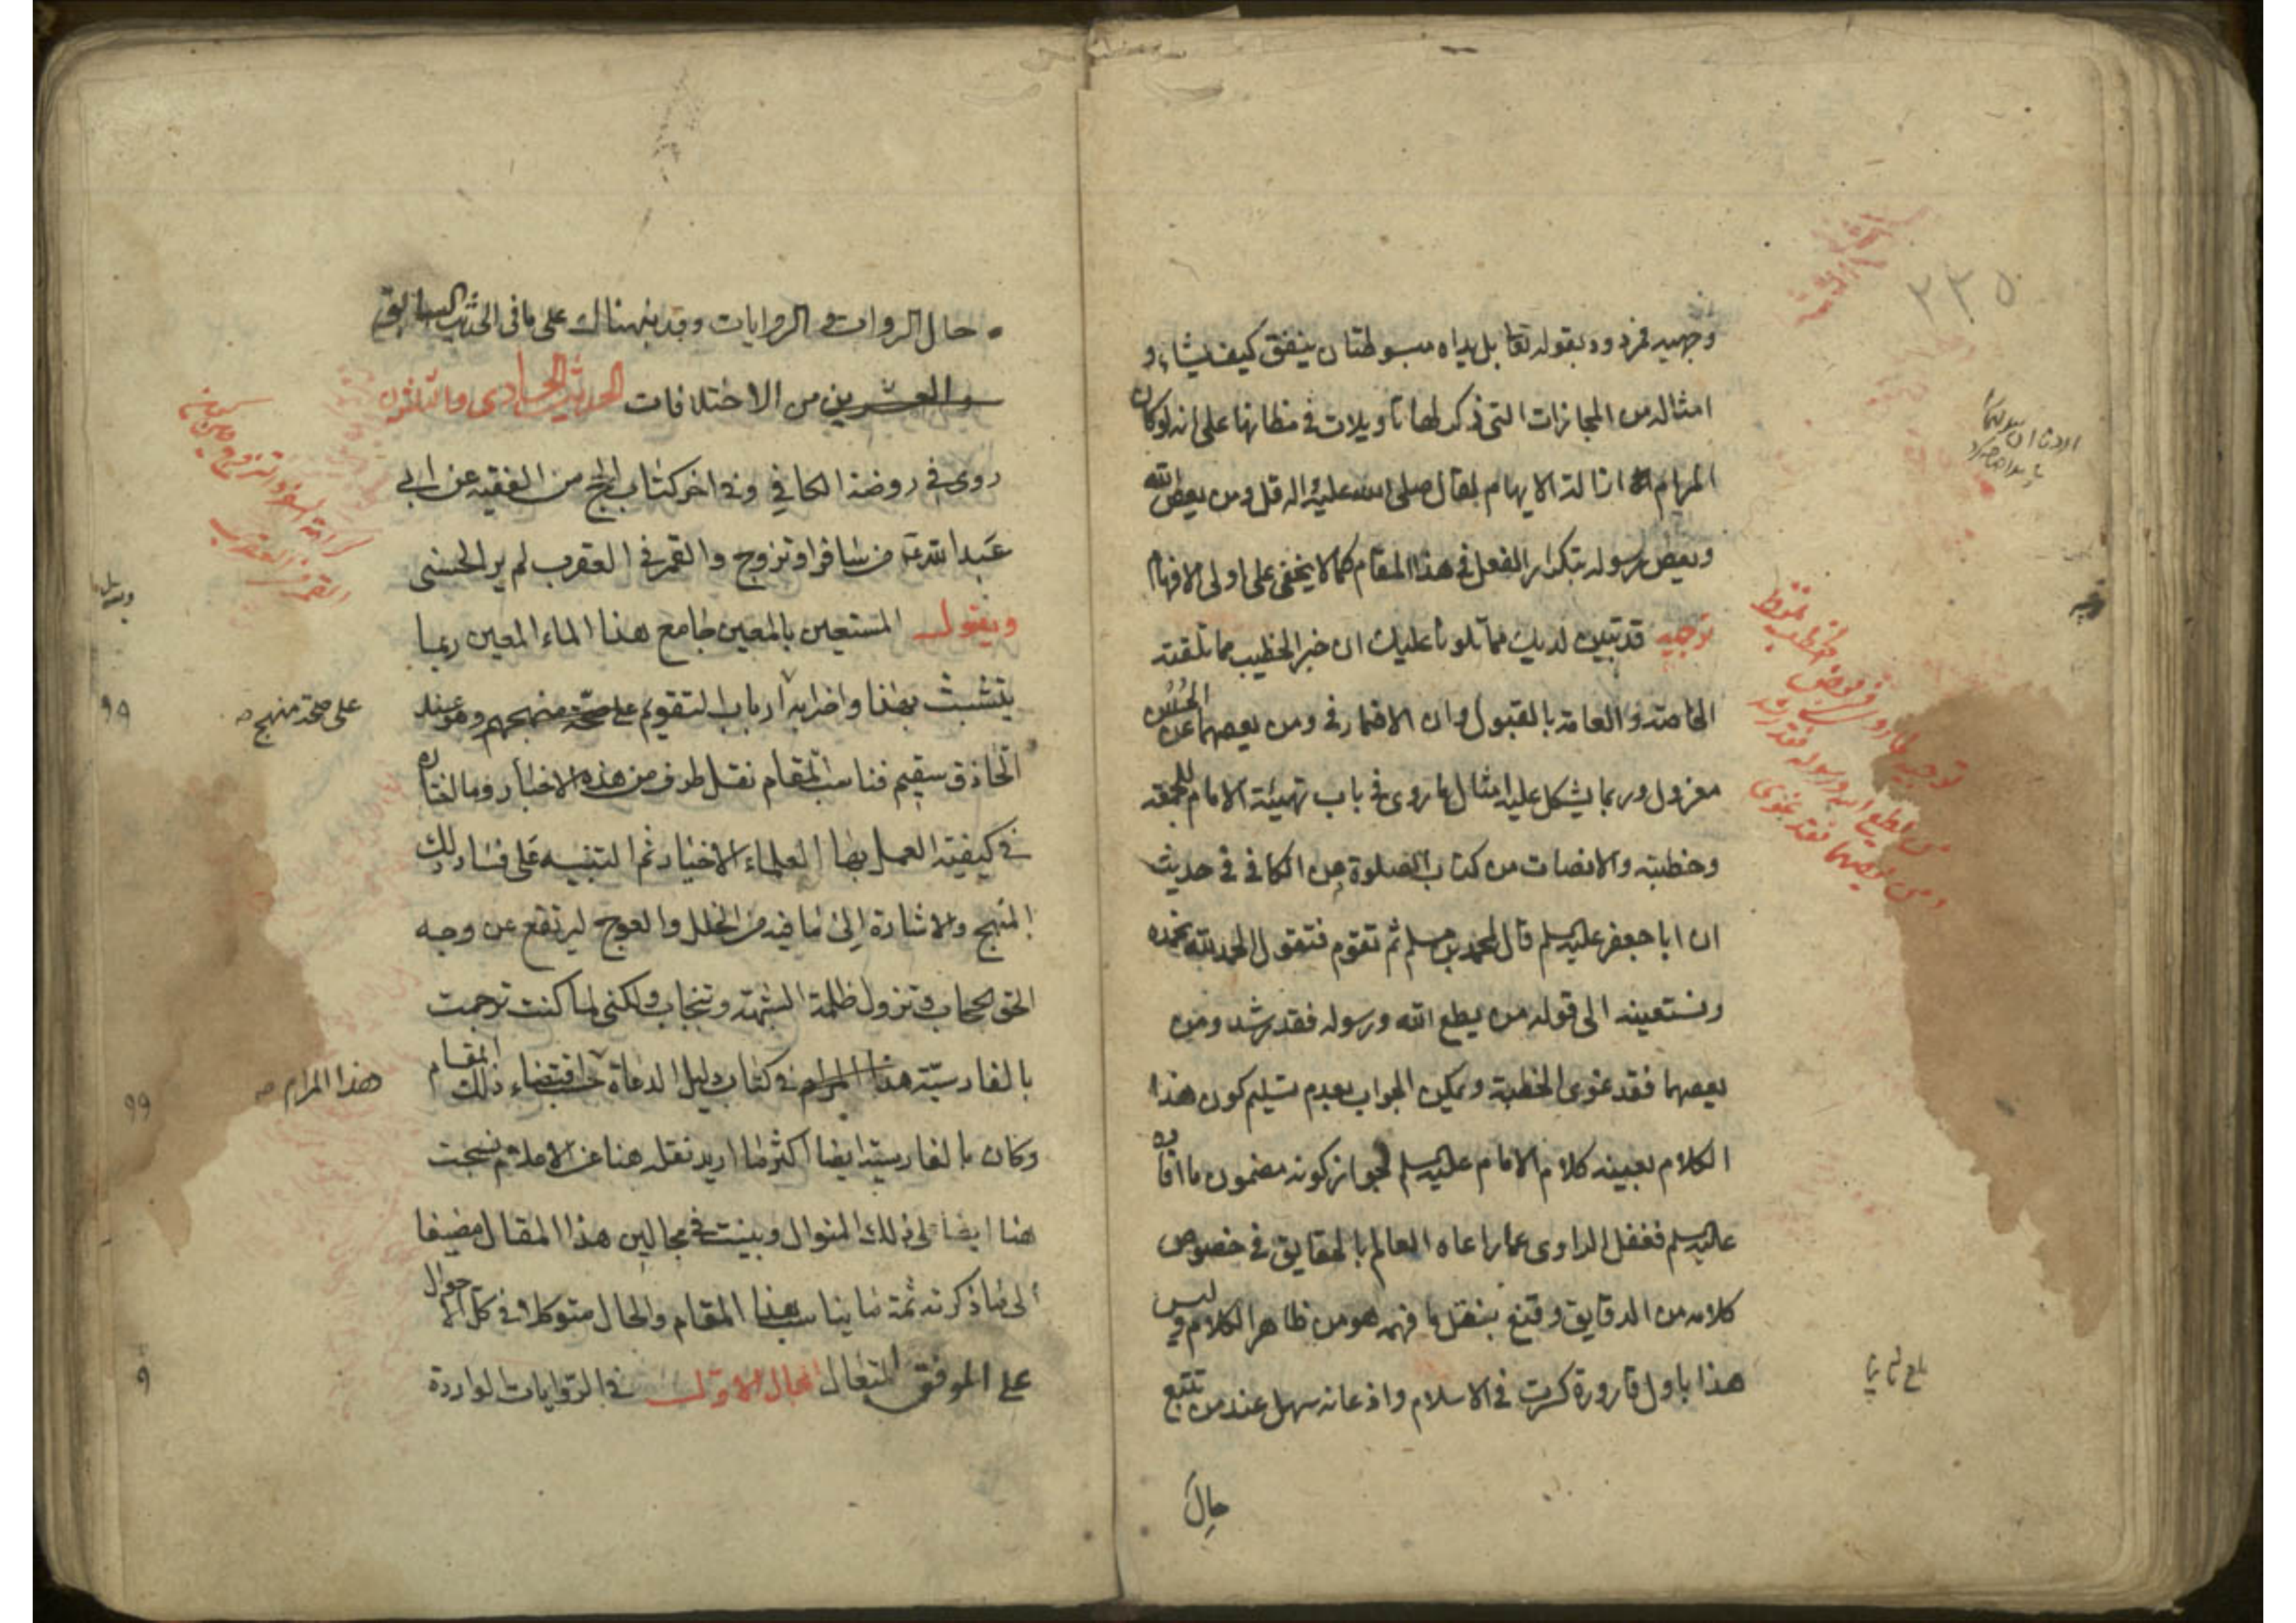 ٢٣٥
وجهيه فمردود بقوله تعا بل يداه مبسوطتان ينفق كيف يشاء و
امثاله من المجازات التى ذكر لها تاويلات فى مظانها على انه لو كان
المرام ازالة الايهام لقال صلى الله عليه واله قل ومن يعص الله
ويعص رسوله بتكرار الفعل فى هذا المقام كما لا يخفى على اولى الافهام
توجيه قد تبين لديك مما تلونا عليك ان خبر الخطيب مما تلقته
الخاصة والعامة بالقبول وان الاضمار فى ومن يعصهما عن الحسن
معزول وربما يشكل عليه امثال ما روى فى باب تهيئة الامام للجمعة
وخطبته والانصات من كتاب الصلوة من الكافى فى حديث
ان ابا جعفر عليه السلم قال لمحمد بن مسلم ثم تقوم فتقول الحمد لله نحمده
ونستعينه الى قوله من يطع الله ورسوله فقد رشد ومن
يعصهما فقد غوى الخطبة ويمكن الجواب بعدم تسليم كون هذا
الكلام بعينه كلام الامام عليه السلم لجواز كونه مضمون ما افاده
عليه السلم فغفل الراوى عما راعاه العالم بالحقايق فى خصوص
كلامه من الدقايق وقنع بنقل ما فهمه هو من ظاهر الكلام وليس
هذا باول قارورة كسرت فى الاسلام واذعانه سهل عند من تتبع
حال
توجيه لما روى فى بعض الخطب
من يطع الله ورسوله فقد رشد
ومن يعصهما فقد غوى
حال الروات والروايات وقد نبهناك على ما فى الحديث السابق
والعشرين من الاختلافات الحديث الحادى والثلثون
روى فى روضة الكافى وفى اخر كتاب الحج من الفقيه عن ابى
عبد الله ع من سافر او تزوج والقمر فى العقرب لم ير الحسنى
ويقول المستعين بالمعين جامع هذا الماء المعين ربما
يتشبث بهذا واضرابه ارباب التقويم على صحة منهجهم وهو عند
الحاذق سقيم فناسب المقام نقل طرف من هذه الاخبار وما اختاره
فى كيفية العمل بها العلماء الاخيار ثم التنبيه على فساد ذلك
المنهج والاشارة الى ما فيه من الخلل والعوج ليرتفع عن وجه
الحق الحجاب وتزول ظلمة الشبهة وتنجاب ولكنى لما كنت ترجمت
بالفارسية هذا المرام فى كتاب دليل الدعاة حسب اقتضاء ذلك المقام
وكان بالفارسية ايضا اكثر ما اريد نقله هنا عن الاعلام نسجت
هنا ايضا على ذلك المنوال وبينت فى مجالين هذا المقال مضيفا
الى ما ذكرته ثمة ما يناسب هذا المقام والحال متوكلا فى كل الاحوال
على الموفق المتعال المجال الاول فى الروايات الواردة
كراهة السفر والتزويج
والقمر فى العقرب
على صحة منهج
هذا المرام